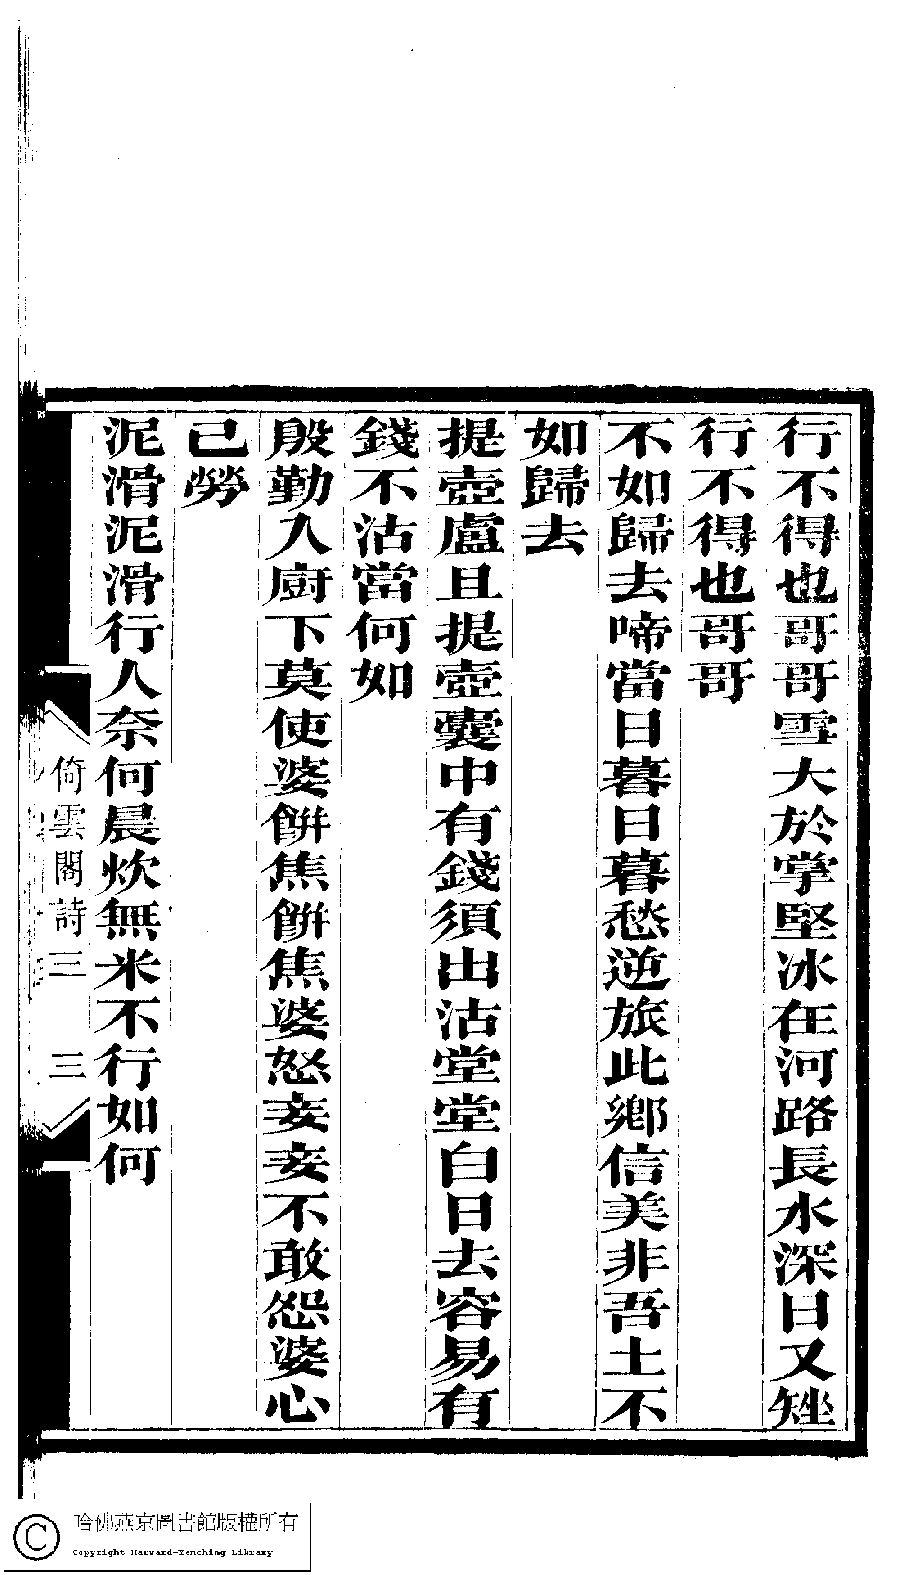 行不得也哥哥雪大於掌堅冰在河路長水深日又矬
行不得也哥哥
不如歸去啼當日暮日暮愁逆旅此鄉信美非吾土不
如歸去
提壺盧且提壺囊中有錢須出沽堂堂白日去容易有
錢不沽當何如
殷勤入廚下莫使婆餅焦餅焦婆怒妾妾不敢怨婆心
已勞
泥滑泥滑行人奈何晨炊無米不行如何
倚雲閣詩三 三
哈佛燕京圖書館版權所有
Copyright Harvard-Yenching Library